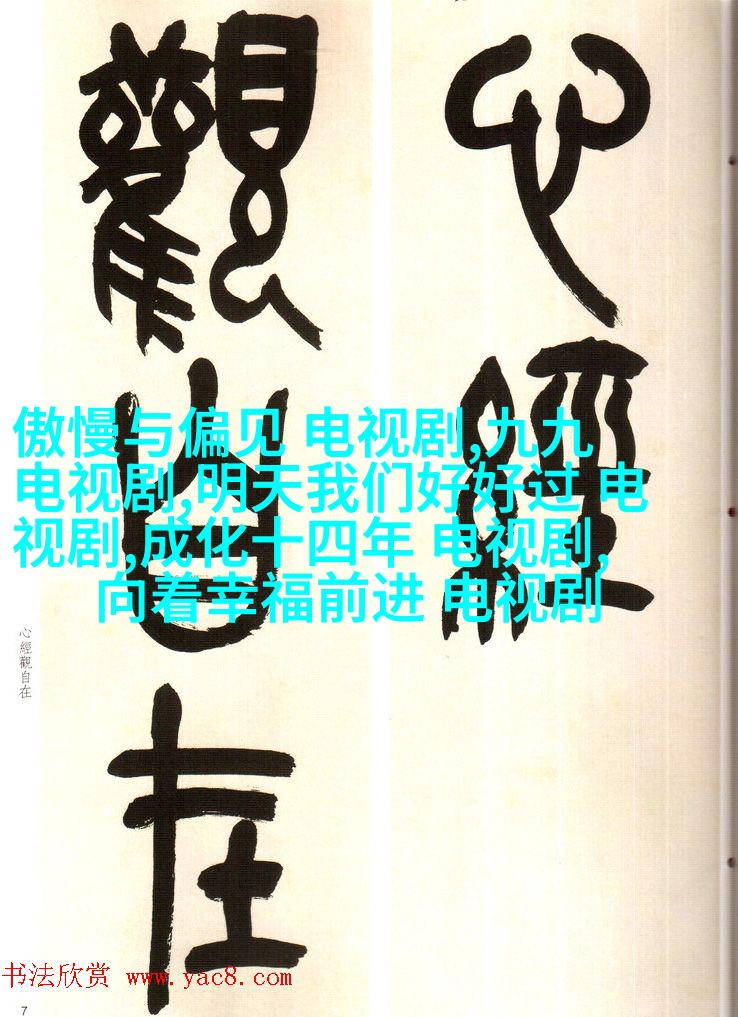 心經
觀自在
傲慢与偏见 电视剧,九九
电视剧,明天我们好好过 电
视剧,成化十四年 电视剧,
向着幸福前进 电视剧
心經觀自在
书法欣赏 www.yac8.com
7